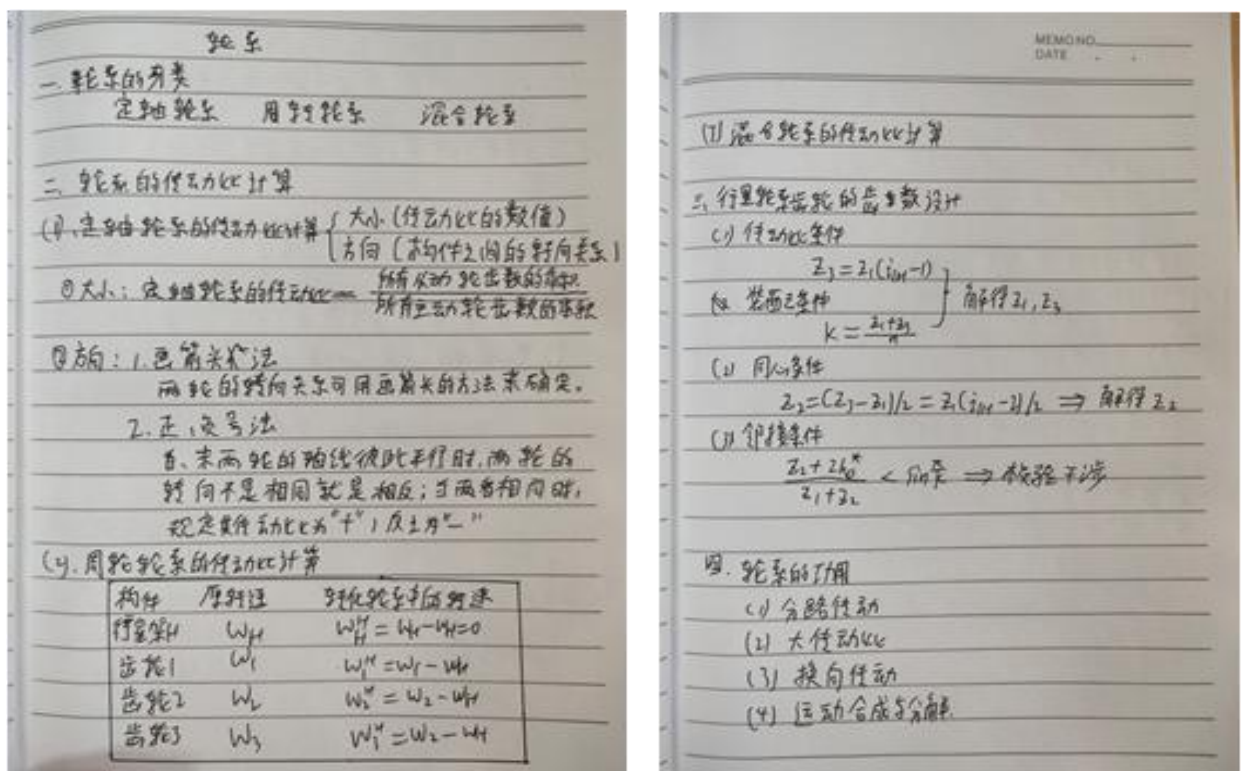 轮系
一. 轮系的分类
定轴轮系 周转轮系 混合轮系
二、轮系的传动比计算
(1). 定轴轮系的传动比计算 { 大小 (传动比的数值)
方向 (各构件之间的转向关系)
①大小: 定轴轮系的传动比 = 所有从动轮齿数的乘积 / 所有主动轮齿数的乘积
②方向: 1. 画箭头法
两轮的转向关系可用画箭头的方法来确定。
2. 正、负号法
首、末两轮的轴线彼此平行时, 两轮的
转向不是相同就是相反; 当两者相同时,
规定其传动比为"+", 反之为"—"
(2). 周转轮系的传动比计算
构件 原转速 转化轮系中的转速
行星架H ω_H ω_H^H = ω_H - ω_H = 0
齿轮1 ω_1 ω_1^H = ω_1 - ω_H
齿轮2 ω_2 ω_2^H = ω_2 - ω_H
齿轮3 ω_3 ω_1^H = ω_2 - ω_H
MEMO NO.
DATE . .
混合轮系的传动比计算
三、行星轮系齿轮的齿数设计
(1) 传动比条件
Z_3 = Z_1(i_{1H} - 1)
装配条件 } 解得 Z_1, Z_3
k = (Z_1 + Z_3) / n
(2) 同心条件
Z_2 = (Z_3 - Z_1)/2 = Z_1(i_{1H} - 2)/2 ⇒ 解得 Z_2
(3) 邻接条件
(Z_2 + 2h_a^*) / (Z_1 + Z_2) < ⇒ 校验干涉
四. 轮系的功用
(1) 分路传动
(2) 大传动比
(3) 换向传动
(4) 运动合成与分解